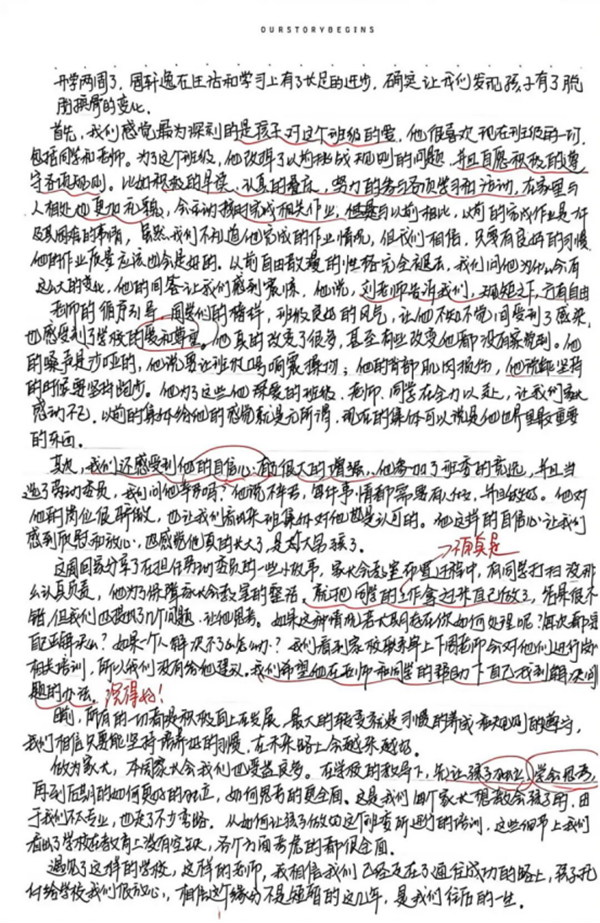 OURSTORYBEGINS
开学两周了，周轩逸在生活和学习上有了长足的进步，确定让我们发现孩子有了脱
胎换骨的变化。
首先，我们感觉最为深刻的是孩子对这个班级的爱，他很喜欢现在班级的一切，
包括同学和老师。为了这个班级，他改掉了以前挑战规则的问题，并且自愿积极的遵
守各项规则。比如积极的早读、认真的，努力的参与各项学习和活动，在寄望与
人相处也更加礼貌，会按时完成相关作业，但是与以前相比，以前的完成作业是一件
及其困难的事情，虽然我们不知道他完成的作业情况，但我们相信，只要有良好的习惯
他的作业质量应该也会是好的。从前自由散漫的性格完全褪去，我们问他为什么会有
这么大的变化，他的回答让我们感到震惊，他说，刘老师告诉我们，规矩之下，方有自由
老师的循序引导，同学们的榜样，班级良好的风气，让他不知不觉间受到了感染，
也感受到了学校的爱和尊重。他真的改变了很多，甚至有些改变他都没有察觉到。他
的嗓子是沙哑的，他说要让班级口号响震操场；他的背部肌肉损伤，他说能坚持
的时候要坚持跑步。他为了这些他深爱的班级、老师、同学在全力以赴，让我们家长
感动不已，以前的集体给他的感觉就是无所谓，现在的集体可以说是他世界里最重要
的东西。
其次，我们还感受到他的自信心有了很大的增强，他参加了班委的竞选，并且当
选了劳动委员，我们问他辛苦吗？他说不辛苦，每件事情都需要有人做，并且做好。他对
他的岗位很骄傲，也让我们看出来班集体对他也是认可的。他这样的自信心让我们
感到欣慰和放心，也感觉他真的长大了，是大男孩了。
不简直是
这周回家分享了在担任劳动委员的一些小故事，家长会教室布置过程中，有同学打扫没那
么认真负责，他为了保障家长会教室的整洁，就把同学的工作拿过来自己做了，结果很不
错，但我们也提出了几个问题，让他思考。如果这种情况老大期存在你如何处理呢？每次都要
自己来解决么？如果一个人解决不了怎么办？我们看到家校联系单上下周老师会对他们进行岗位
相关培训，所以我们没有给他建议。我们希望他在老师和同学的帮助下自己找到解决问
题的办法。 说得好！
目前，所有的一切都是积极向上在发展，最大的转变就是习惯的养成和规则的遵守，
我们相信只要能坚持培养好的习惯，在未来路上会越来越好。
做为家长，本周家长会我们也受益良多。在学校的教导下，先让孩子独立，学会思考，
再到后期的如何更好的独立，如何思考的更全面。这是我们每个家长想教会孩子的，由
于我们不专业，也走了不少弯路。从如何让孩子做的这个班委所进行的培训，这些细节上我们
看出了学校在教育上没有空缺，各个方面考虑的都很全面。
遇见了这样的学校，这样的老师，我相信我们已经走在了通往成功的路上，孩子托
付给学校我们很放心，相信这个缘分不是短暂的这几年，是我们往后的一生。